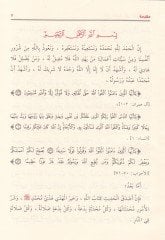 مقدمة
بسم الله الرحمن الرحيم
إن الحمد لله نحمده ونستعينه ونستغفره، ونعوذ بالله من شرور
أنفسنا ومن سيئات أعمالنا، من يهده الله فلا مضل له، ومن يضلل فلا
هادي له، وأشهد أن لا إله إلا الله وحده لا شريك له، وأشهد أن محمدًا عبده
ورسوله.
﴿يا أيها الذين آمنوا اتقوا الله حق تقاته ولا تموتن إلا وأنتم مسلمون﴾
[آل عمران: ١٠٢].
﴿يا أيها الناس اتقوا ربكم الذي خلقكم من نفس واحدة وخلق منها زوجها
وبث منهما رجالا كثيرا ونساء واتقوا الله الذي تساءلون به والأرحام إن الله كان عليكم رقيبا﴾
[النساء: ١].
﴿يا أيها الذين آمنوا اتقوا الله وقولوا قولا سديدا يصلح لكم أعمالكم
ويغفر لكم ذنوبكم ومن يطع الله ورسوله فقد فاز فوزا عظيما﴾
[الأحزاب: ٧٠-٧١].
أما بعد:
فإن أصدق الحديث كتاب الله، وخير الهدي هدي محمد ﷺ، وشر
الأمور محدثاتها، وكل محدثة بدعة، وكل بدعة ضلالة، وكل ضلالة
في النار.